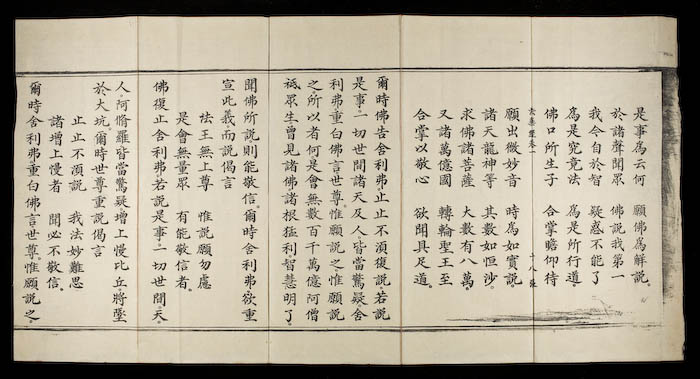 是事爲云何　願佛爲解說。
於諸聲聞眾　佛說我第一
我今自於智　疑惑不能了
爲是究竟法　爲是所行道
佛口所生子　合掌瞻仰待
卷一　十八
願出微妙音　時爲如實說
諸天龍神等　其數如恒沙。
求佛諸菩薩　大數有八萬。
又諸萬億國　轉輪聖王至
合掌以敬心　欲聞具足道。
爾時佛告舍利弗止止不湏復說。若說
是事。一切世間諸天及人。皆當驚疑舍
利弗重白佛言世尊。惟願說之惟願說
之所以者何是會無數百千萬億阿僧
祇眾生曾見諸佛諸根猛利智慧明了。
聞佛所說則能敬信。爾時舍利弗。欲重
宣此義而說偈言
法王無上尊　惟說願勿慮
是會無量眾　有能敬信者。
佛復止舍利弗若說是事。一切世間天。
人。阿脩羅皆當驚疑增上慢比丘。將墜
於大坑。爾時世尊重說偈言
止止不湏說　我法妙難思
諸增上慢者　聞必不敬信。
爾時舍利弗重白佛言世尊。惟願說之。